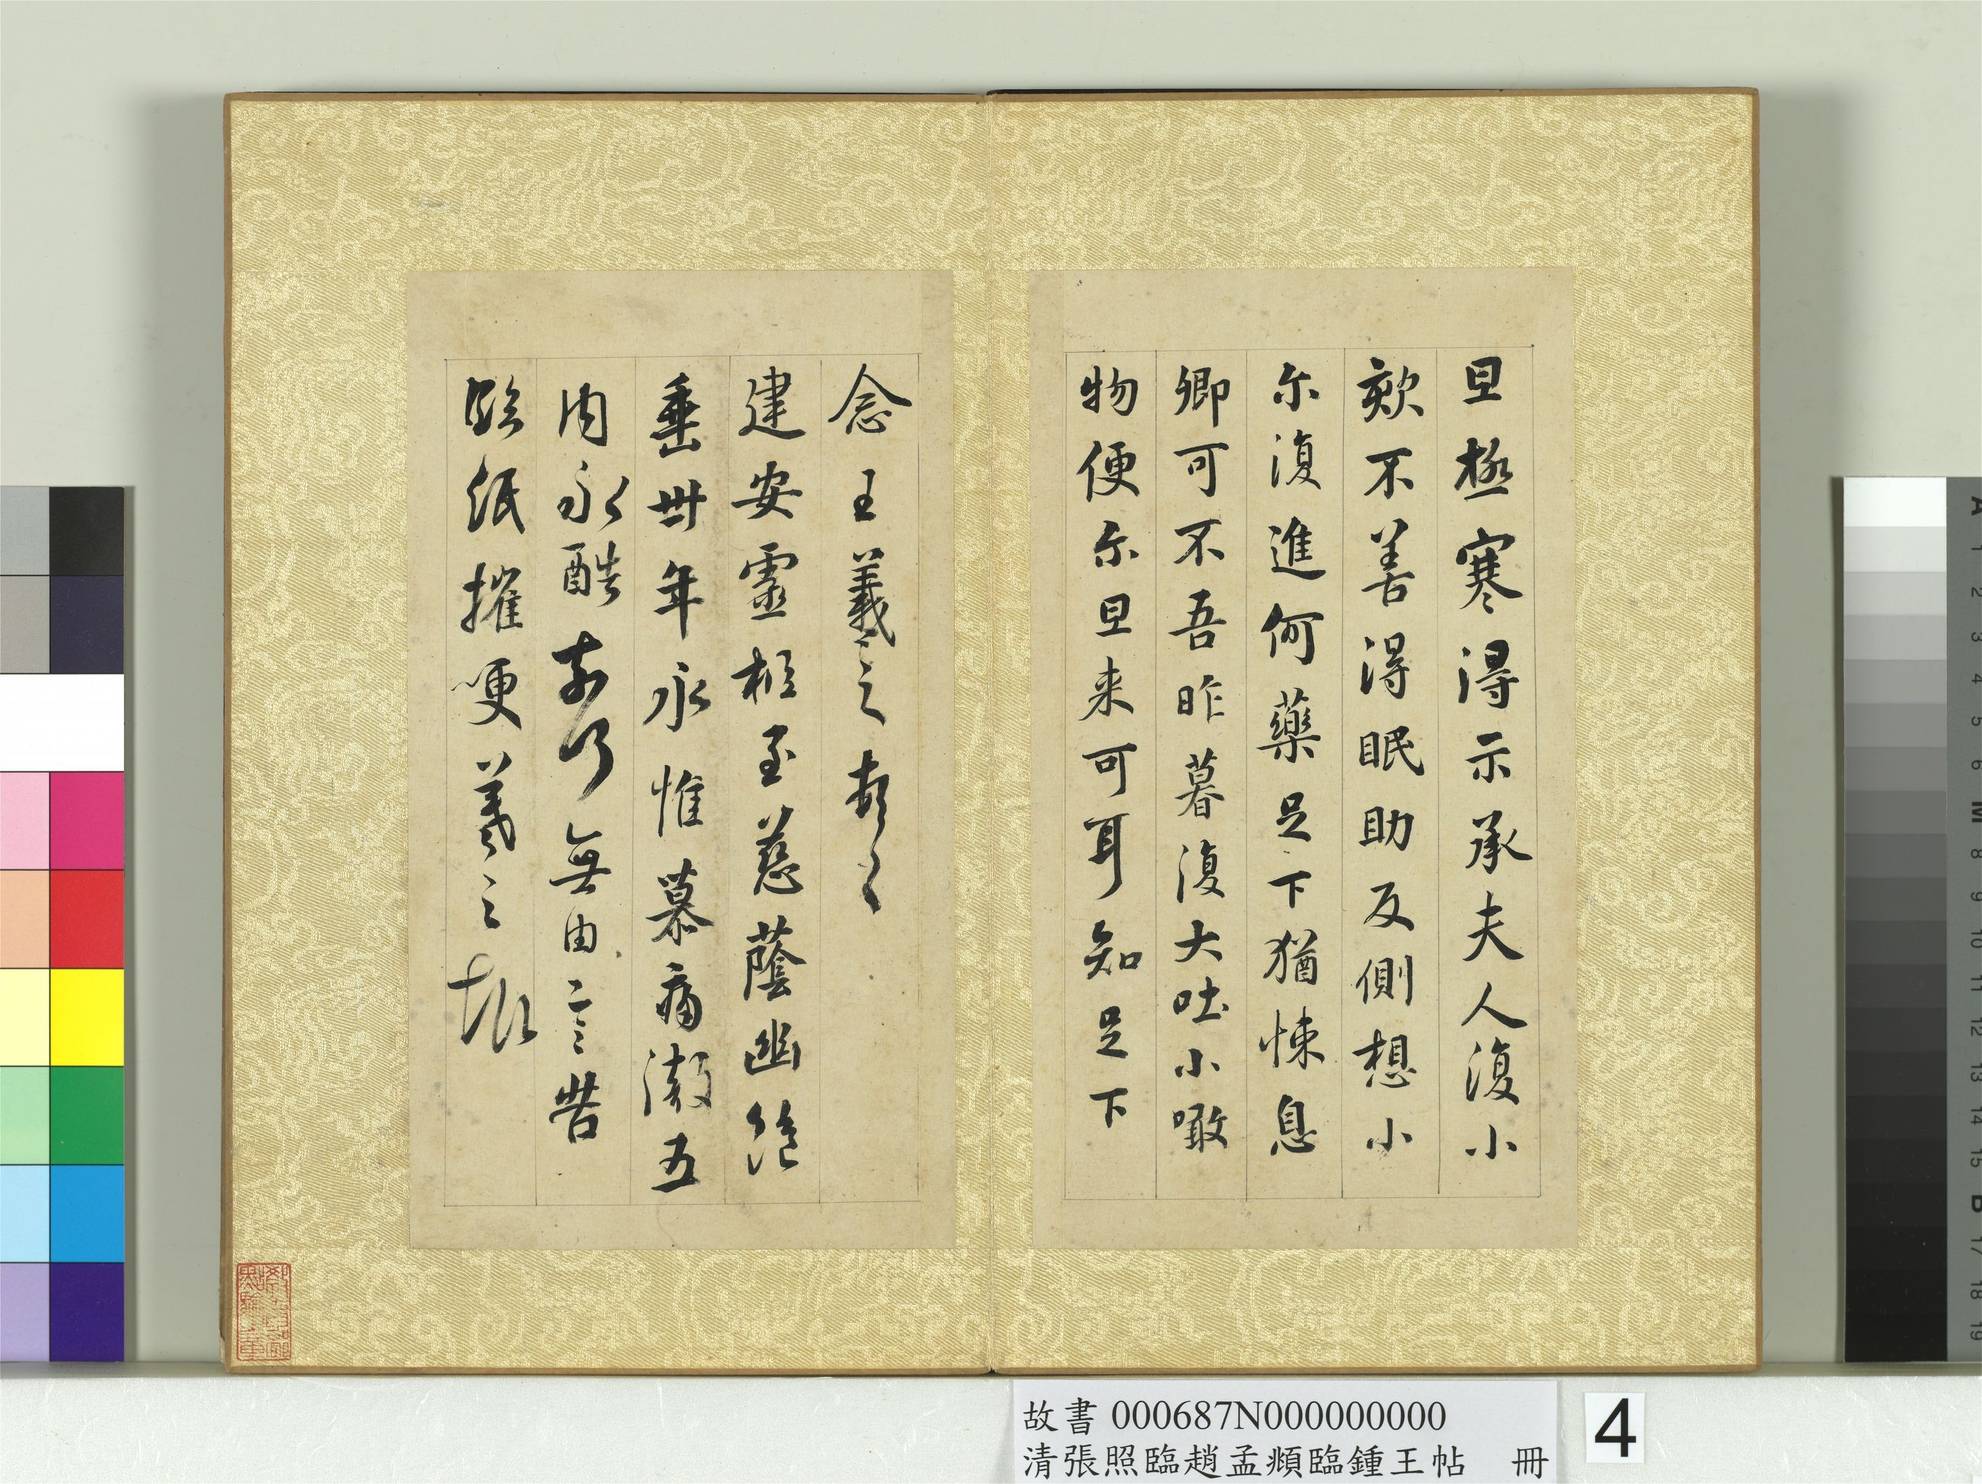 旦極寒得示承夫人復小
欬不善得眠助反側想小
尔復進何藥足下猶悚息
卿可不吾昨暮復大吐小噉
物便尔旦来可耳知足下
念王羲之頓首
建安靈柩至慈蔭幽絕
垂卅年永惟慕痛徹五
內永酷奈何無由言苦
臨紙摧哽羲之報
故書 000687N000000000
清張照臨趙孟頫臨鍾王帖 冊
4